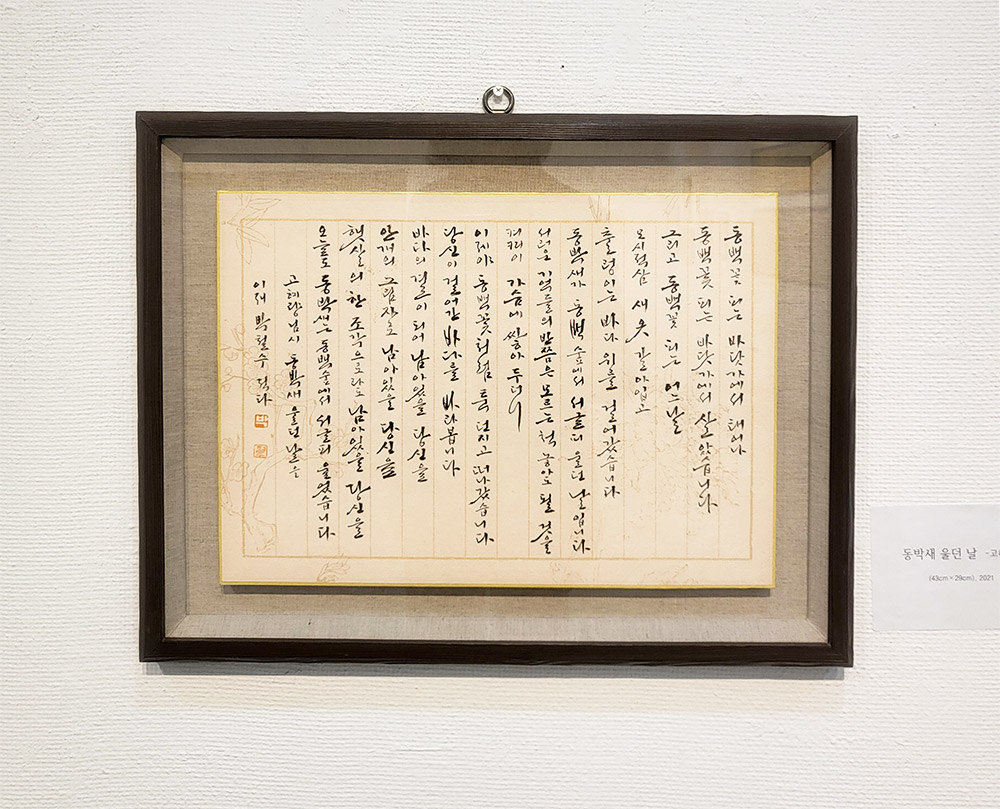 동백꽃 피는 바닷가에서 태어나
동백꽃 피는 바닷가에서 살았습니다
그리고 동백꽃 피는 어느날
모시적삼 새 옷 갈아입고
출렁이는 바다 위를 걸어갔습니다
동박새가 동백숲에서 서글피 울던 날입니다
서러운 기억들의 반쯤은 모르는 척 놓아도 될 것을
켜켜이 가슴에 쌓아 두더니
이제야 동백꽃처럼 툭 던지고 떠나갔습니다
당신이 걸어간 바다를 바라봅니다
바다의 결로이 되어 남아있을 당신을
안개의 그림자로 남아있을 당신을
햇살의 한 조각으로라도 남아있을 당신을
오늘도 동박새는 동백숲에서 서글피 울었습니다
고혜량님시 동박새 울던 날을
이재 박철수 적다
동박새 울던 날
(43cm×29cm), 2021